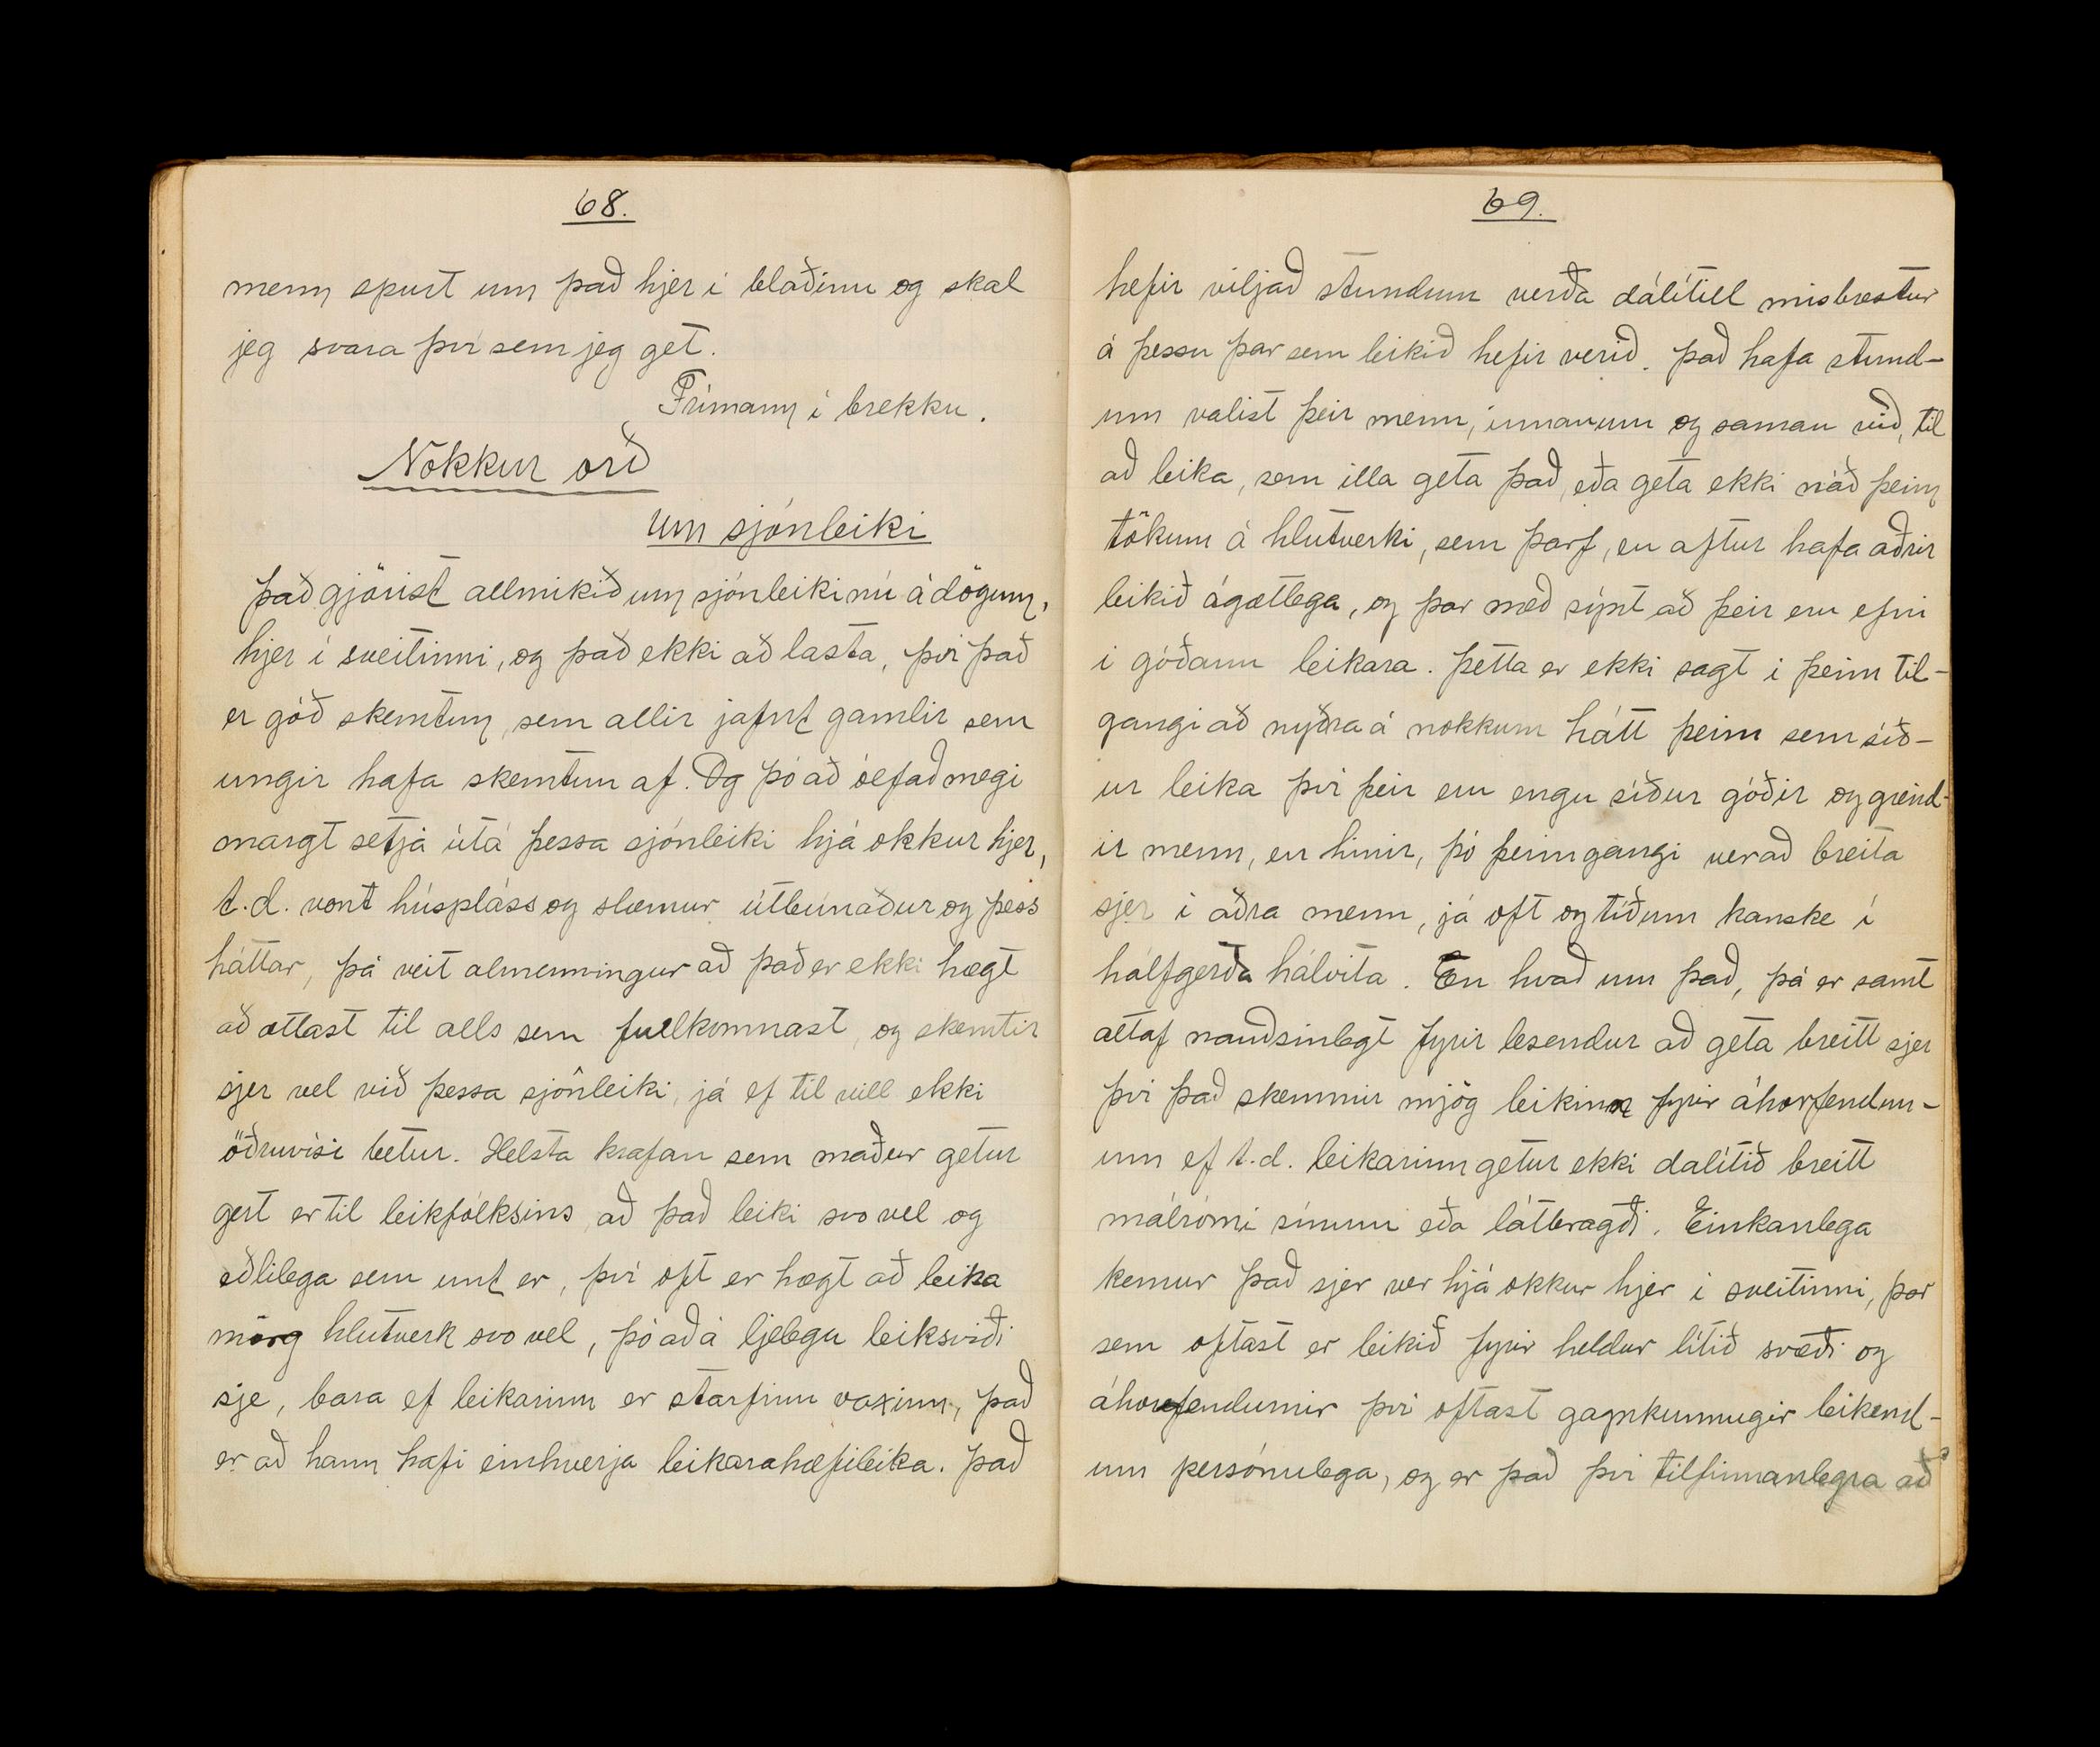 68.
menn spurt um það hjer í blaðinu og skal
jeg svara því sem jeg get.
Frímann í brekku.
Nökkur orð
um sjónleiki
það gjörist allmikið um sjónleiki nú á dögum,
hjer í sveitinni, og það ekki að lasta, því það
er góð skemtun, sem allir jafnt gamlir sem
ungir hafa skemtun af. Og þó að óefað megi
margt setja útá þessa sjónleiki hjá okkur hjer,
t.d. vont húspláss og slæmur útbúnaður og þess
háttar, þá veit almenningur að það er ekki hægt
að ætlast til alls sem fullkomnast, og skemtir
sjer vel við þessa sjónleiki, já ef til vill ekki
öðruvísi betur. Helsta krafan sem maður getur
gert er til leikfólksins, að það leiki svo vel og
eðlilega sem unt er, því oft er hægt að leika
mörg hlutverk svo vel, þó að á ljelegu leiksviði
sje, bara ef leikarinn er starfinu vaxinn, það
er að hann hafi einhverja leikarahæfileika. það
69.
hefir viljað stundum verða dálítill misbrestur
á þessu þar sem leikið hefir verið. það hafa stund-
um valist þeir menn, innanum og saman við, til
að leika, sem illa geta það, eða geta ekki náð þeim
tökum á hlutverki, sem þarf, en aftur hafa aðrir
leikið ágætlega, og þar með sýnt að þeir eru efni
í góðann leikara. þetta er ekki sagt í þeim til-
gangi að nyðra á nokkurn hátt þeim sem síð-
ur leika því þeir eru engu síður góðir og greind-
ir menn, en hinir, þó þeim gangi ver að breita
sjer í aðra menn, já oft og tíðum kanske í
hálfgerða hálvita. En hvað um það, þá er samt
altaf nauðsinlegt fyrir lesendur að geta breitt sjer
því það skemmir mjög leikinn fyrir áhorfendun-
um ef t.d. leikarinn getur ekki dalítið breitt
málrómi sínum eða látbragði. Einkanlega
kemur það sjer ver hjá okkur hjer í sveitinni, þar
sem oftast er leikið fyrir heldur lítið svæði og
áhorfendurnir því oftast gagnkunnugir leikend-
um persónulega, og er það því tilfinnanlegra að